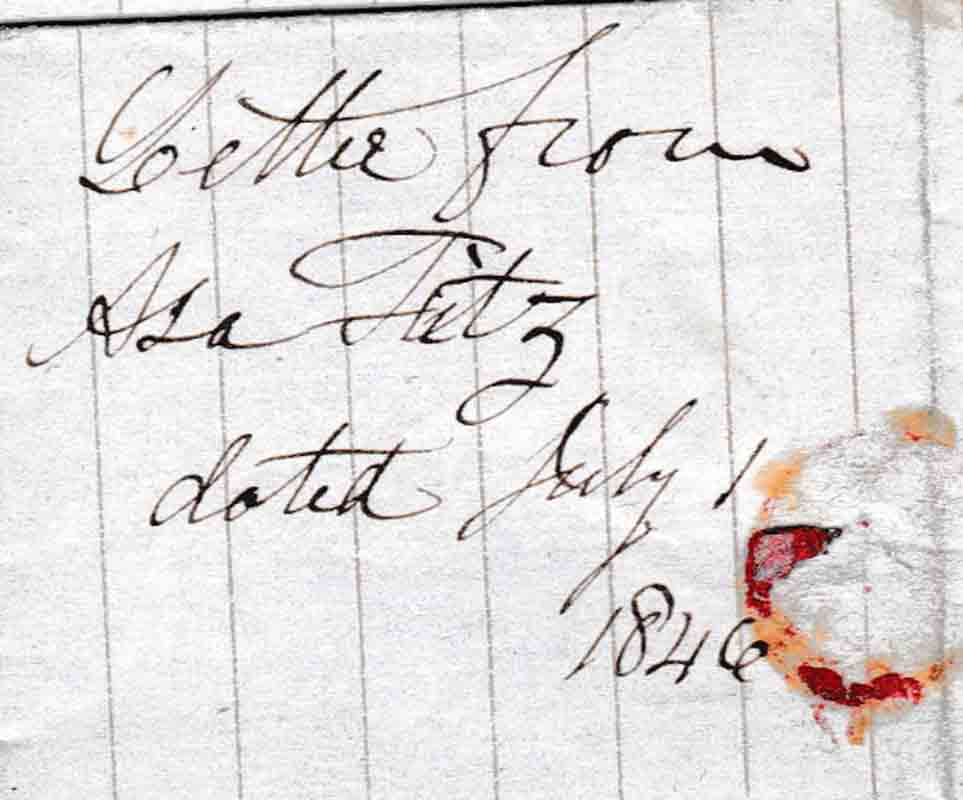 Letter from
Asa Fitz
dated July 1
1846